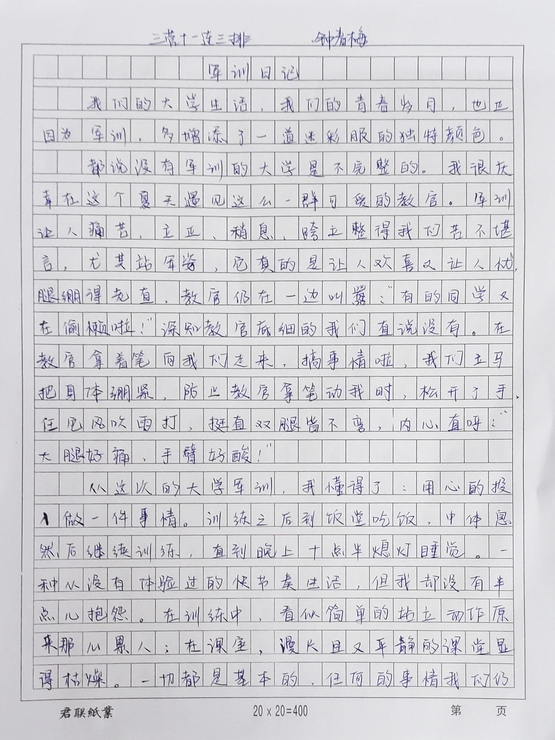 三营十一连三排 钟春梅
军训日记
我们的大学生活，我们的青春岁月，也正
因为军训，多增添了一道迷彩服的独特颜色。
都说没有军训的大学是不完整的。我很庆
幸在这个夏天遇见这么一群可爱的教官。军训
让人痛苦，立正、稍息、跨立整得我们苦不堪
言，尤其站军姿，它真的是让人欢喜又让人忧，
腿绷得老直，教官仍在一边叫嚣："有的同学又
在偷懒啦！"深知教官底细的我们直说没有。在
教官拿着笔向我们走来，搞事情啦，我们立马
把身体绷紧，防止教官拿笔动我时，松开了手、
任凭风吹雨打，挺直双腿皆不弯，内心直呼："
大腿好痛，手臂好酸！"
从这次的大学军训，我懂得了：用心的投
入做一件事情。训练之后到饭堂吃饭，中体息
然后继续训练，直到晚上十点半熄灯睡觉。一
种从没有体验过的快节奏生活，但我却没有半
点心抱怨。在训练中，看似简单的站立动作原
来那么累人；在课座，漫长且又平静的课堂显
得枯燥。一切都是基本的，任何的事情我们仍
君联纸业 20×20=400 第 页